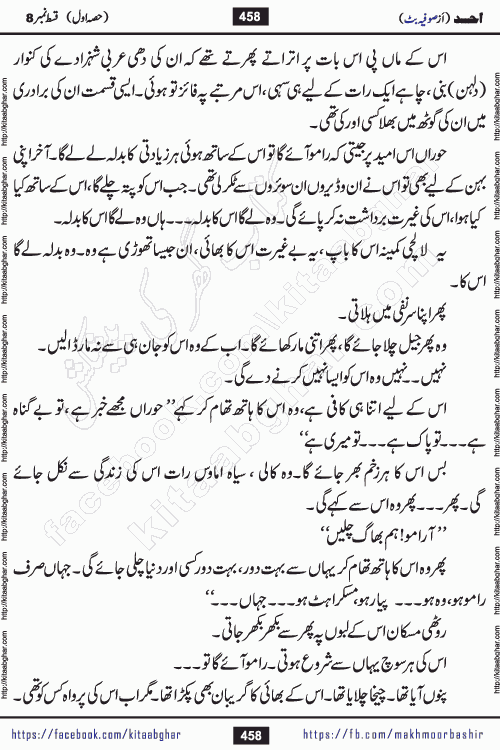 احمد (از صوفیہ بٹ) 458 (حصہ اول) قسط نمبر 8
اس کے ماں پی اس بات پر اتراتے پھرتے تھے کہ ان کی دھی عربی شہزادے کی کنوار
(دلہن) بنی، چاہے ایک رات کے لیے ہی سہی، اس مرتبے پہ فائز تو ہوئی۔ ایسی قسمت ان کی برادری
میں ان کی گوٹھ میں بھلا کسی اور کی تھی۔
حوراں اس امید پر جیتی کہ رامو آئے گا تو اس کے ساتھ ہوئی ہر زیادتی کا بدلہ لے لے گا۔ آخر اپنی
بہن کے لیے بھی تو اس نے ان وڈیروں ان سوئروں سے ٹکر لی تھی۔ جب اس کو پتہ چلے گا، اس کے ساتھ کیا
کیا ہوا، اس کی غیرت برداشت نہ کر پائے گی۔ وہ لے گا اس کا بدلہ۔۔۔ ہاں وہ لے گا اس کا بدلہ۔
یہ لالچی کمینہ اس کا باپ، یہ بے غیرت اس کا بھائی، ان جیسا تھوڑی ہے وہ۔ وہ بدلہ لے گا
اس کا۔
پھر اپنا سر نفی میں ہلاتی۔
وہ پھر جیل چلا جائے گا، پھر اتنی مار کھائے گا۔ اب کے وہ اس کو جان ہی سے نہ مار ڈالیں۔
نہیں۔۔ نہیں وہ اس کو ایسا نہیں کرنے دے گی۔
اس کے لیے اتنا ہی کافی ہے، وہ اس کا ہاتھ تھام کر کہے’’ حوراں مجھے خبر ہے، تو بے گناہ
ہے۔۔۔ تو پاک ہے۔۔۔ تو میری ہے‘‘
بس اس کا ہر زخم بھر جائے گا۔ وہ کالی، سیاہ اماوس رات اس کی زندگی سے نکل جائے
گی۔ پھر۔۔۔ پھر وہ اس سے کہے گی۔
’’آ رامو! ہم بھاگ چلیں‘‘
پھر وہ اس کا ہاتھ تھام کر یہاں سے بہت دور، بہت دور کسی اور دنیا چلی جائے گی۔ جہاں صرف
رامو ہو، وہ ہو۔۔۔ پیار ہو، مسکراہٹ ہو۔۔۔ جہاں۔۔۔‘‘
روٹھی مسکان اس کے لبوں پہ پھر سے بکھر بکھر جاتی۔
اس کی ہر سوچ یہاں سے شروع ہوتی۔ رامو آئے گا تو۔۔۔
پنوں آیا تھا۔ چیخا چلایا تھا۔ اس کے بھائی کا گریبان بھی پکڑا تھا۔ مگر اب اس کی پرواہ کس کو تھی۔
https://facebook.com/kitaabghar 458 https://fb.com/makhmoorbashir
http://kitaabghar.com
کتاب گھر کی پیشکش
facebook.com/kitaabghar
kitaabghar.com